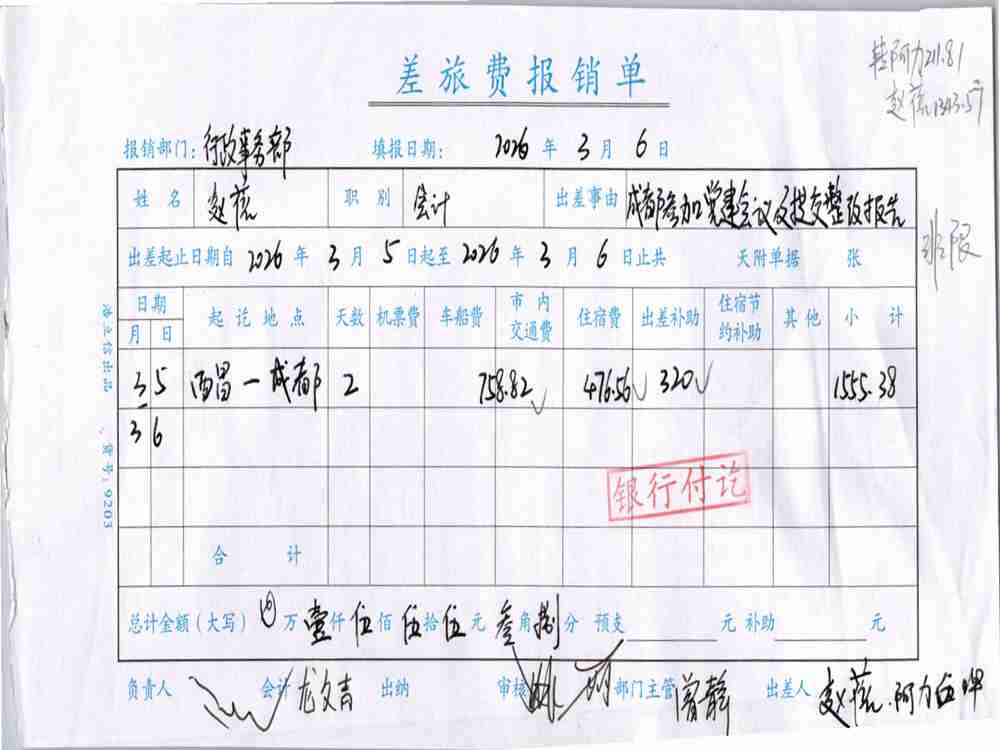 转阿力211.81
赵蓓1343.57
差旅费报销单
报销部门：行政事务部 填报日期：2026年3月6日
姓名 赵蓓 职别 会计 出差事由 成都参加党建会议及提交整改报告
班限
出差起止日期自2026年3月5日起至2026年3月6日止共 天附单据 张
日期 月 日 起讫地点 天数 机票费 车船费 市内交通费 住宿费 出差补助 住宿节约补助 其他 小计
3 5 西昌—成都 2 758.82 476.56 320 1555.38
3 6
银行付讫
合计
总计金额（大写）万壹仟伍佰伍拾伍元叁角捌分 预支 元 补助 元
负责人 会计 龙文吉 出纳 审核 部门主管 曾静 出差人 赵蓓、阿力
货号：9203